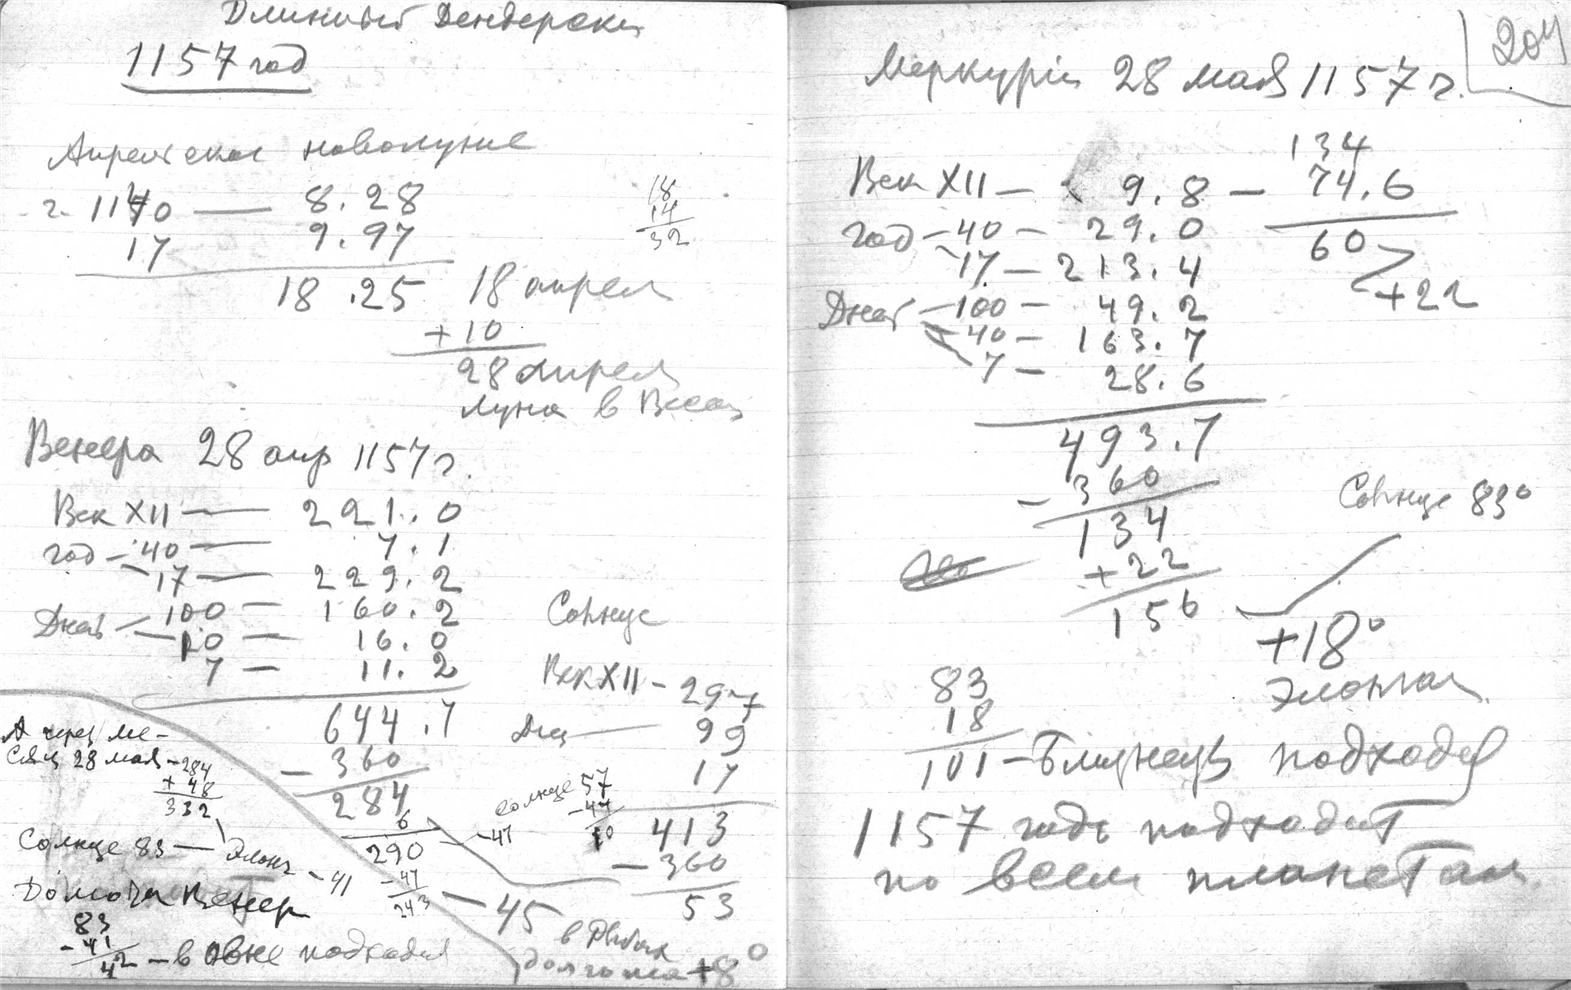 Длинный Дендерский
1157 год
Апрельское новолуние
г. 1140 — 8.28
17 9.97
18.25 18 апрель
+10
28 апрель
луна в Весах
18
14
32
Венера 28 апр 1157 г.
Век XII — 291.0
год — 40 — 7.1
17 — 229.2
Дней — 100 — 160.2
10 — 16.0
7 — 11.2
644.7
- 360
284
6
290
-47
243
-47
— 45
в Рыбах
долгота +8°
Солнце
Век XII — 297
Дней — 99
17
413
- 360
53
солнце 57
-47
10
А через ме-
сяц 28 мая — 284
+ 48
332
Солнце 83 — Элонг — 41
Долгота Венеры
83
- 41
42 — в Овне подходит
204
Меркурий 28 мая 1157 г.
Век XII — 9.8 — 74.6
134
60
+22
год — 40 — 29.0
17 — 213.4
Дней — 100 — 49.2
40 — 163.7
7 — 28.6
493.7
- 360
134
+22
156
Солнце 83°
+18°
Элонгац
83
18
101 — Близнецы подходит
1157 годъ подходит
по всем планетам